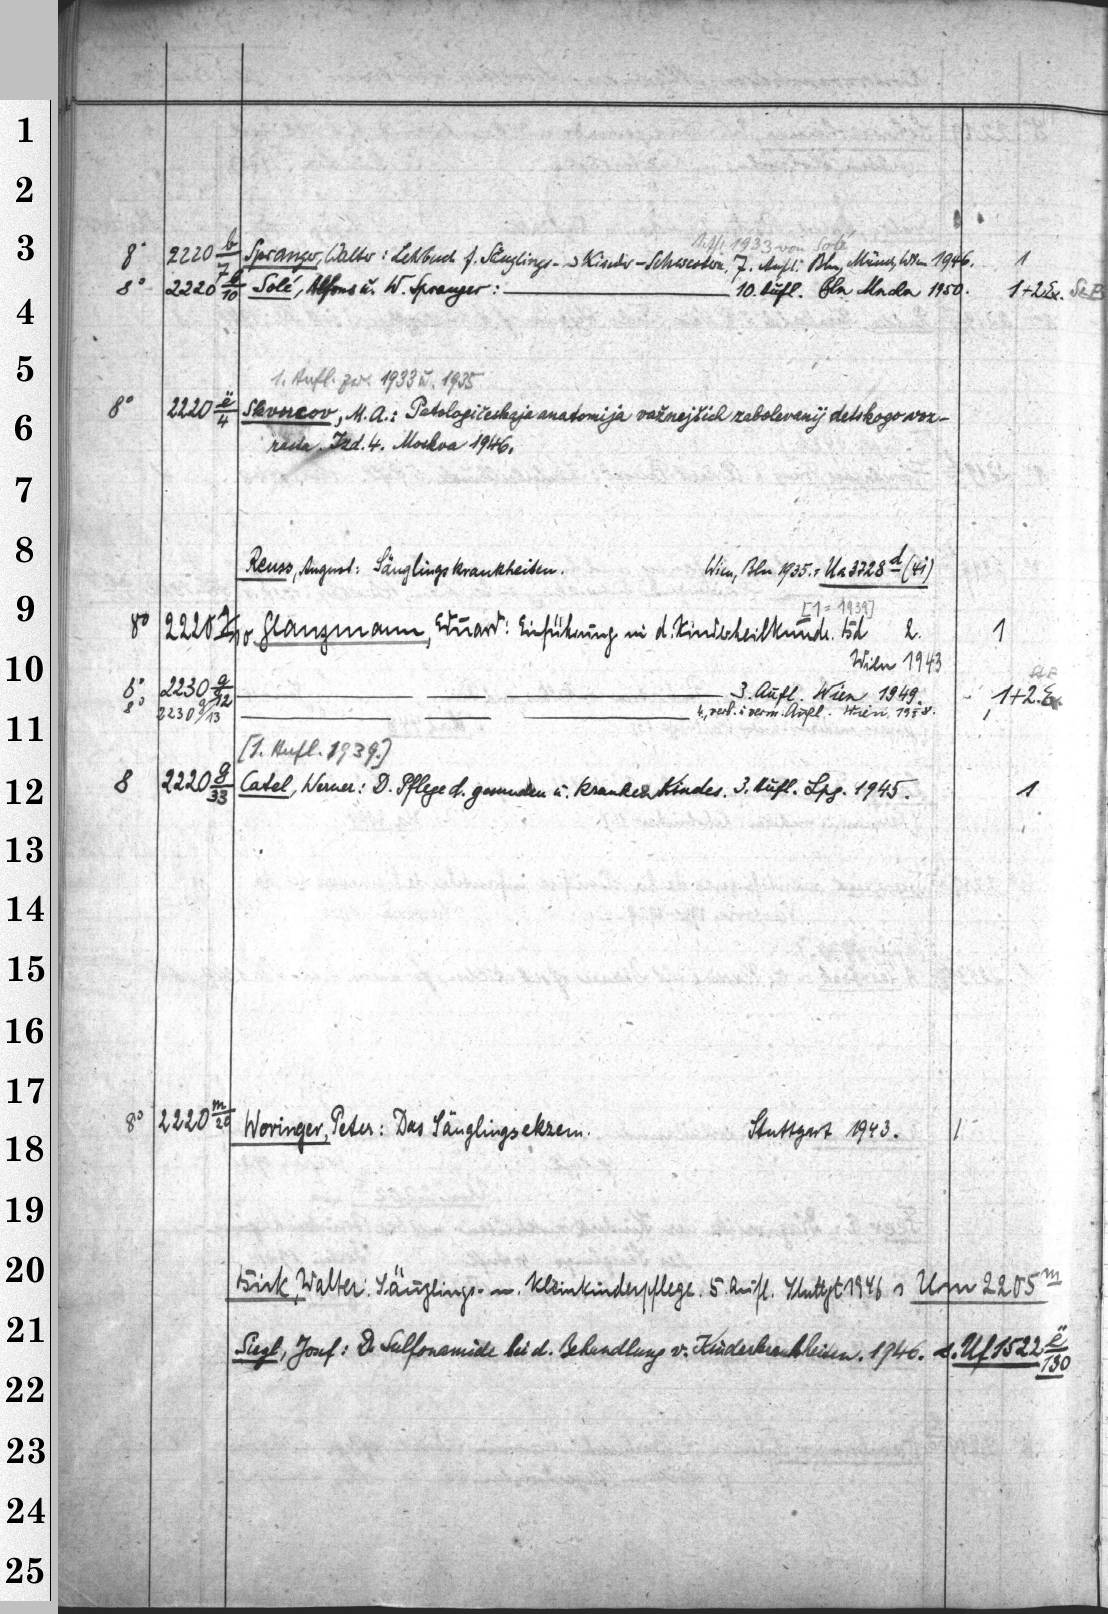 1
2
1. Aufl. 1933 von Solé
3 8° 2220 b/7 Spranger, Walter: Lehrbuch f. Säuglings- u Kinder-Schwestern. 7. Aufl. Bln, Münch, Wien 1946. 1
8° 2220 b/10 Solé, Alfons u. W. Spranger: 10. Aufl. Bln 1950. 1+2.Ex.
4
5 1. Aufl. 1933 u. 1935
6 8° 2220 ë/4 Skvorcov, M.A.: Patologičeskaja anatomija važnejšich zabolevanij detskogo voz-
rasta. Izd. 4. Moskva 1946.
7
8 Reuss, August: Säuglingskrankheiten. Wien, Bln 1935. Ua 3728 d (4i)
9 [1 = 1939]
8° 2220 Glanzmann, Eduard: Einführung in d. Kinderheilkunde. Bd 2. 1
10 Wien 1943
8° 2230 g/12 3. Aufl. Wien 1949. 1+2.Ex
8° 2230 g/13 4., verb. u verm. Aufl. Wien 1958.
11 [1. Aufl. 1939.]
12 8 2220 g/33 Catel, Werner: D. Pflege d. gesunden u. kranken Kindes. 3. Aufl. Lpg. 1945. 1
13
14
15
16
17
18 8° 2220 m/20 Woringer, Peter: Das Säuglingsekzem. Stuttgart 1943. 1
19
20 Birk, Walter: Säuglings- u. Kleinkinderpflege. 5. Aufl. Stuttgt 1946 s Um 2205 m
21 Siegl, Josef: D. Sulfonamide bei d. Behandlung v. Kinderkrankheiten. 1946. s. Uf 1522 ë/130
22
23
24
25